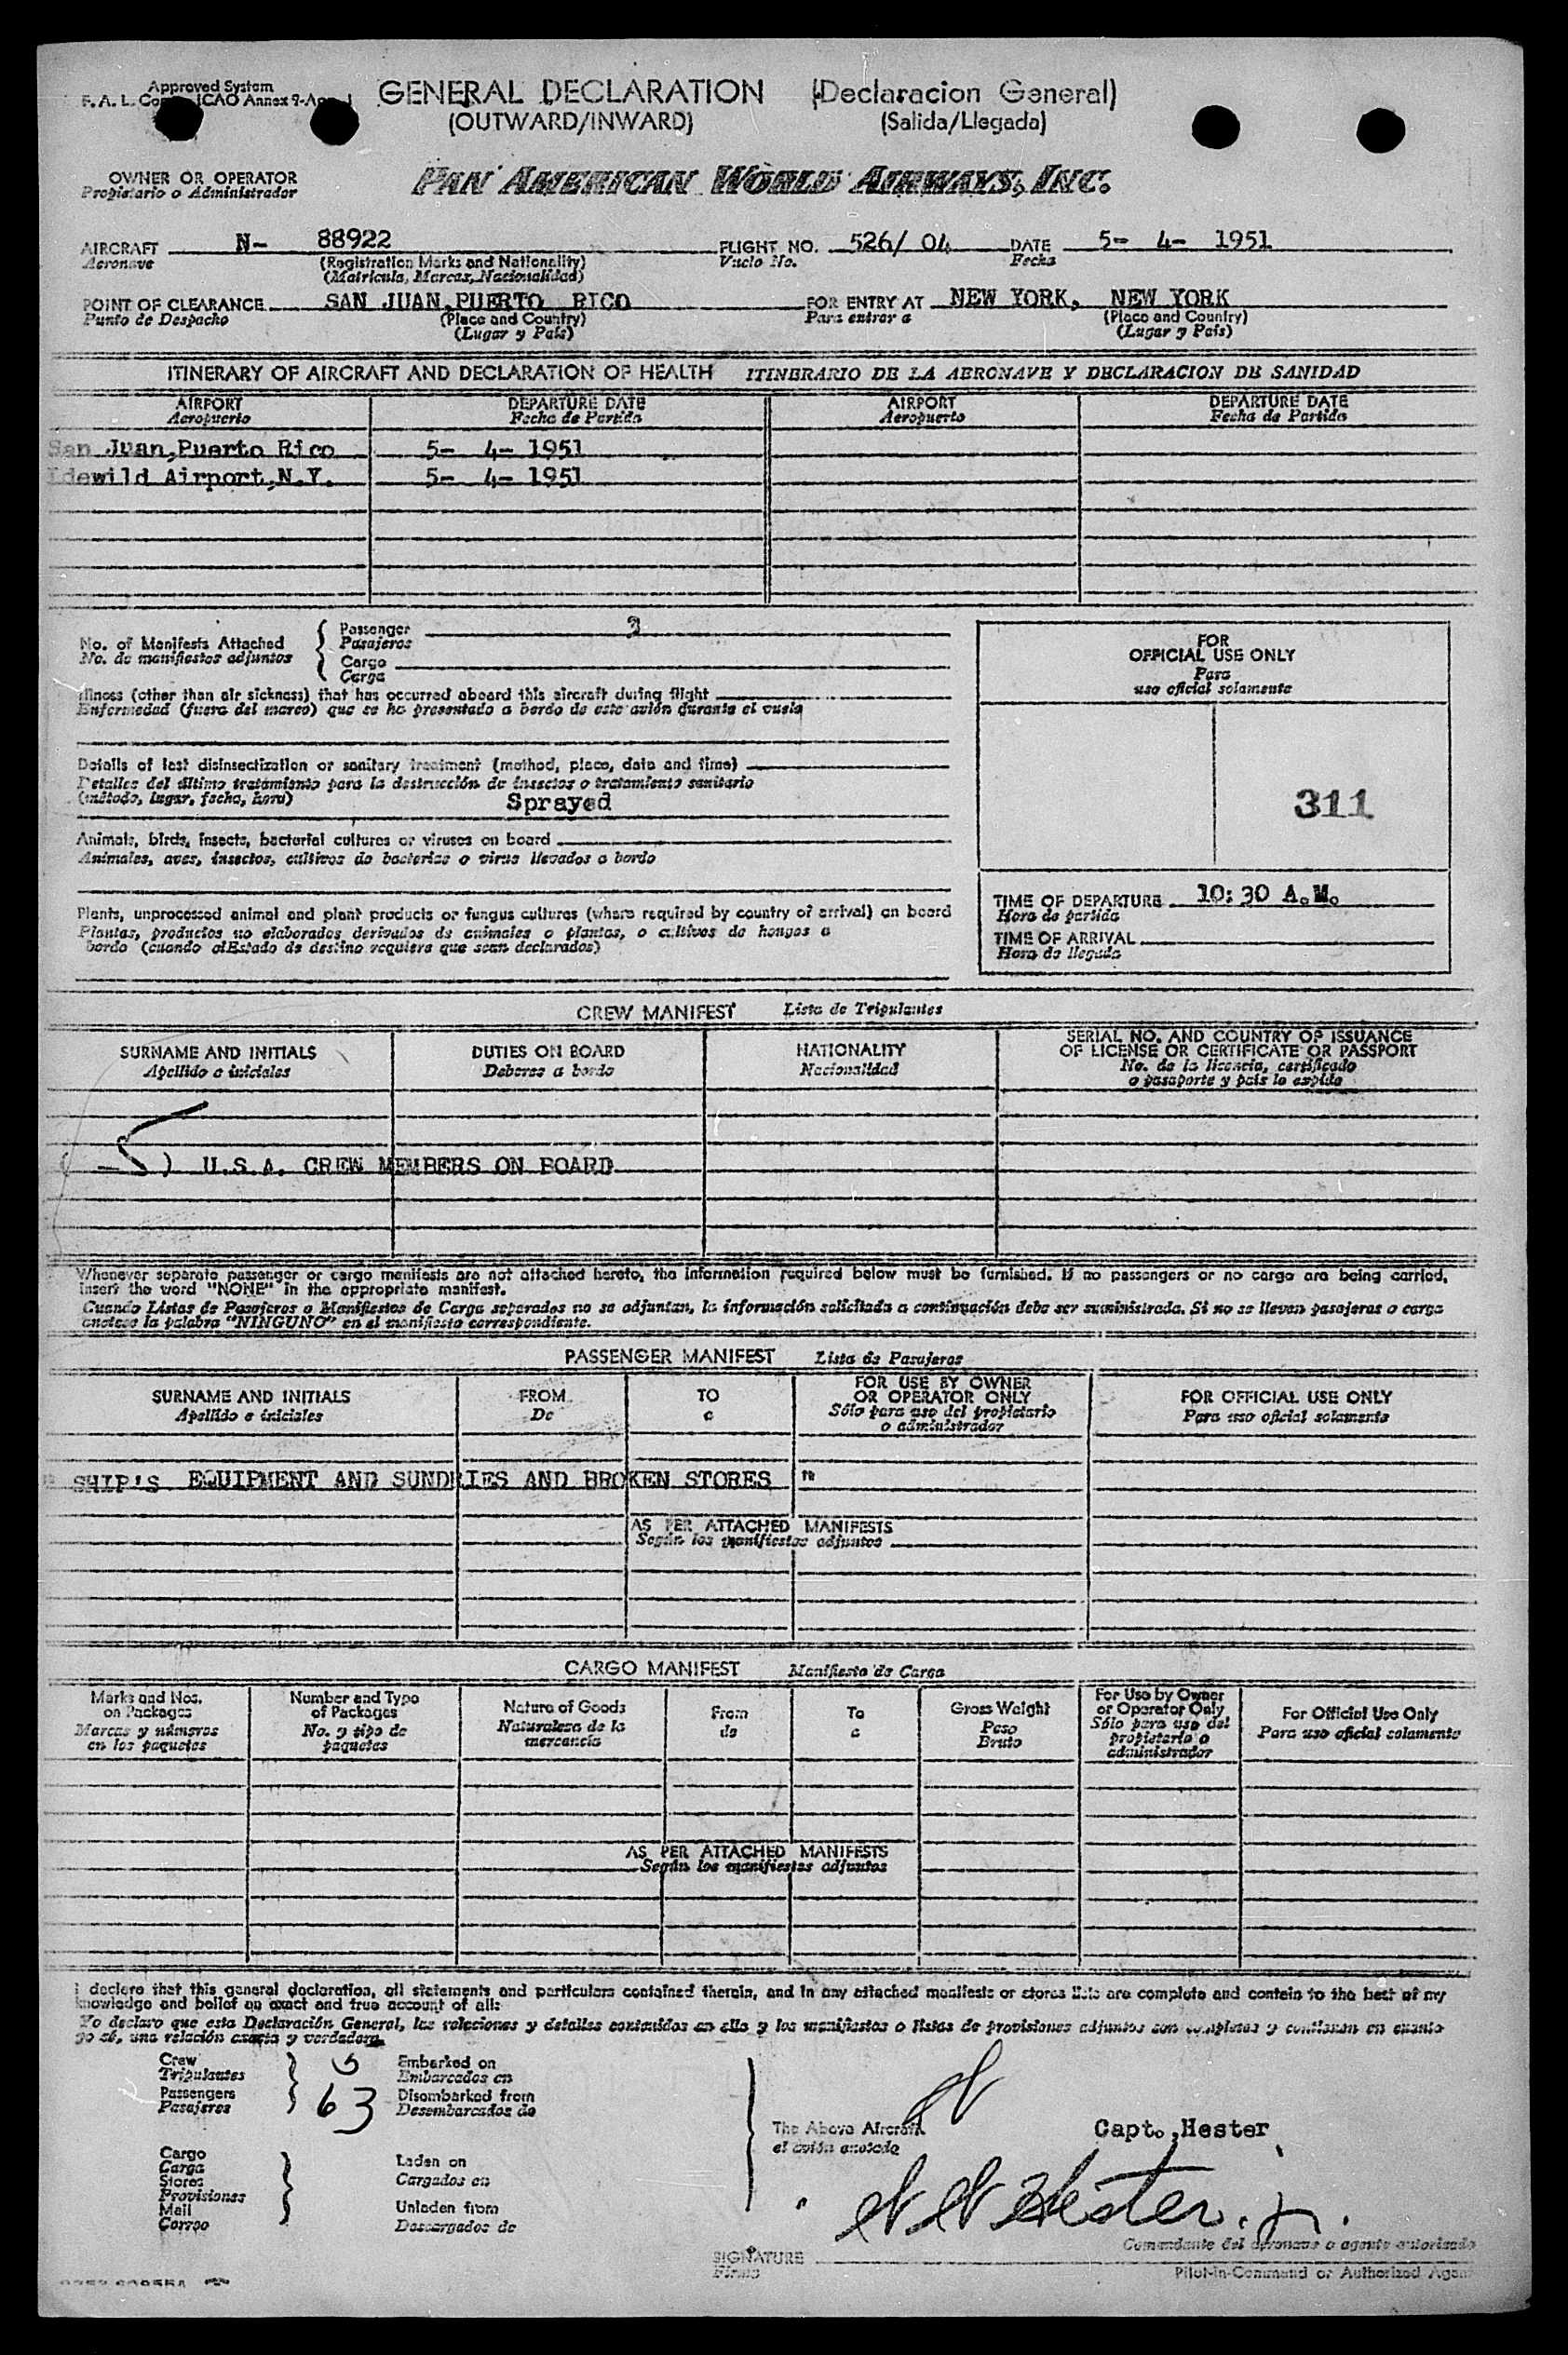 Approved System
F. A. L. ICAO Annex 9-
GENERAL DECLARATION (Declaracion General)
(OUTWARD/INWARD) (Salida/Llegada)
OWNER OR OPERATOR
Propietario o Administrador
PAN AMERICAN WORLD AIRWAYS, INC.
AIRCRAFT N- 88922 FLIGHT NO. 526/ 04 DATE 5- 4- 1951
Aeronave (Registration Marks and Nationality) Vuelo No. Fecha
(Matricula, Marcas, Nacionalidad)
POINT OF CLEARANCE SAN JUAN, PUERTO RICO FOR ENTRY AT NEW YORK, NEW YORK
Punto de Despacho (Place and Country) Para entrar a (Place and Country)
(Lugar y País) (Lugar y País)
ITINERARY OF AIRCRAFT AND DECLARATION OF HEALTH ITINERARIO DE LA AERONAVE Y DECLARACION DE SANIDAD
AIRPORT DEPARTURE DATE AIRPORT DEPARTURE DATE
Aeropuerto Fecha de Partida Aeropuerto Fecha de Partida
San Juan, Puerto Rico 5- 4- 1951
Idewild Airport, N.Y. 5- 4- 1951
No. of Manifests Attached
No. de manifiestos adjuntos
Passenger 3
Pasajeros
Cargo
Carga
FOR
OFFICIAL USE ONLY
Para
uso oficial solamente
Illness (other than air sickness) that has occurred aboard this aircraft during flight
Enfermedad (fuera del mareo) que se ha presentado a bordo de este avión durante el vuelo
Details of last disinsectization or sanitary treatment (method, place, date and time)
Detalles del último tratamiento para la destrucción de insectos o tratamiento sanitario
(método, lugar, fecha, hora) Sprayed
311
Animals, birds, insects, bacterial cultures or viruses on board
Animales, aves, insectos, cultivos de bacterias o virus llevados a bordo
TIME OF DEPARTURE 10:30 A.M.
Hora de partida
TIME OF ARRIVAL
Hora de llegada
Plants, unprocessed animal and plant products or fungus cultures (where required by country of arrival) on board
Plantas, productos no elaborados derivados de animales o plantas, o cultivos de hongos a
bordo (cuando el Estado de destino requiera que sean declarados)
CREW MANIFEST Lista de Tripulantes
SURNAME AND INITIALS DUTIES ON BOARD NATIONALITY SERIAL NO. AND COUNTRY OF ISSUANCE
OF LICENSE OR CERTIFICATE OR PASSPORT
Apellido e iniciales Deberes a bordo Nacionalidad No. de la licencia, certificado
o pasaporte y país lo expide
( 5 ) U.S.A. CREW MEMBERS ON BOARD
Whenever separate passenger or cargo manifests are not attached hereto, the information required below must be furnished. If no passengers or no cargo are being carried,
insert the word "NONE" in the appropriate manifest.
Cuando Listas de Pasajeros o Manifiestos de Carga separados no se adjuntan, la información solicitada a continuación debe ser suministrada. Si no se llevan pasajeros o carga
anotese la palabra "NINGUNO" en el manifiesto correspondiente.
PASSENGER MANIFEST Lista de Pasajeros
SURNAME AND INITIALS FROM TO FOR USE BY OWNER
OR OPERATOR ONLY FOR OFFICIAL USE ONLY
Apellido e iniciales De a Sólo para uso del propietario
o administrador Para uso oficial solamente
" SHIP'S EQUIPMENT AND SUNDRIES AND BROKEN STORES "
AS PER ATTACHED MANIFESTS
Según los manifiestos adjuntos
CARGO MANIFEST Manifiesto de Carga
Marks and Nos.
on Packages
Marcas y números
en los paquetes
Number and Type
of Packages
No. y tipo de
paquetes
Nature of Goods
Naturaleza de la
mercancía
From
de
To
a
Gross Weight
Peso
Bruto
For Use by Owner
or Operator Only
Sólo para uso del
propietario o
administrador
For Official Use Only
Para uso oficial solamente
AS PER ATTACHED MANIFESTS
Según los manifiestos adjuntos
I declare that this general declaration, all statements and particulars contained therein, and in any attached manifests or stores lists are complete and contain to the best of my
knowledge and belief an exact and true account of all:
Yo declaro que esta Declaración General, las relaciones y detalles contenidos en ella y los manifiestos o listas de provisiones adjuntos son completos y contienen en cuanto
yo sé, una relación exacta y verdadera
Crew 5 Embarked on
Tripulantes Embarcados en
Passengers 63 Disembarked from
Pasajeros Desembarcados de
The Above Aircraft
el avión anotado
Capt., Hester
Cargo
Carga
Stores
Provisiones
Mail
Correo
Laden on
Cargados en
Unladen from
Descargados de
Hester. Jr.
SIGNATURE
Firma
Comandante del aeronave o agente autorizado
Pilot-in-Command or Authorized Agent